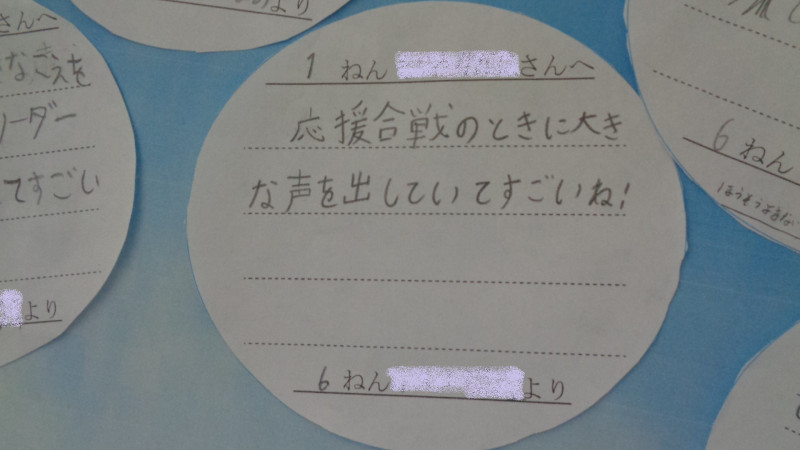 さんへ
なごえを
リーダー
てすごい
より
より
1 ねん さんへ
応援合戦のときに大き
な声を出していてすごいね!
6 ねん より
6 ねん